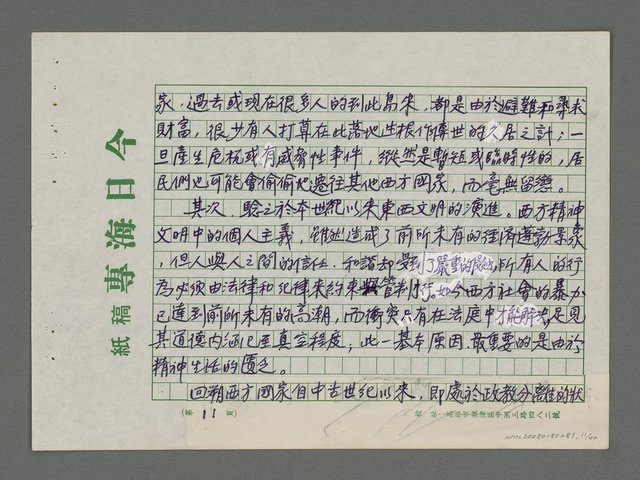 家，過去或現在很多人的到此島來，都是由於避難和尋求
財富，很少有人打算在此落地生根作傳世的久居之計；一
旦產生危机或有威脅性事件，縱然是暫短或臨時性的，居
民們也可能會偷偷地遷往其他西方國家，而毫無留戀。
其次，驗之於本世紀以來東西文明的演進。西方精神
文明中的個人主義，雖然造成了前所未有的經濟蓬勃景象
，但人與人之間的信任、和諧却受到了嚴重的侵蝕，所有人的行
為必須由法律和紀律來約束與管制才行。如今西方社會的暴力
已達到前所未有的高潮，而衝突只有在法庭中才能解決，足見
其道德內涵已至真空程度，此一基本原因，最重要的是由於
精神生活的匱乏。
回朔西方國家自中古世紀以來，即處於政教分離的狀
今日海專稿紙
（第11頁）
校址：高雄市旗津區中洲三路四八二號
NMTL20080180281, 11/40